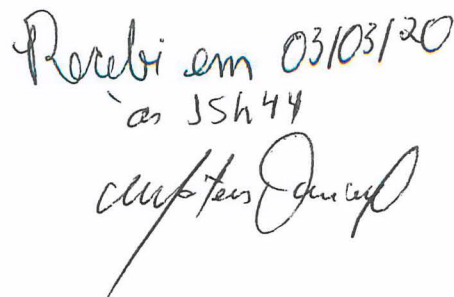 Recebi em 03/03/20
às 15h44